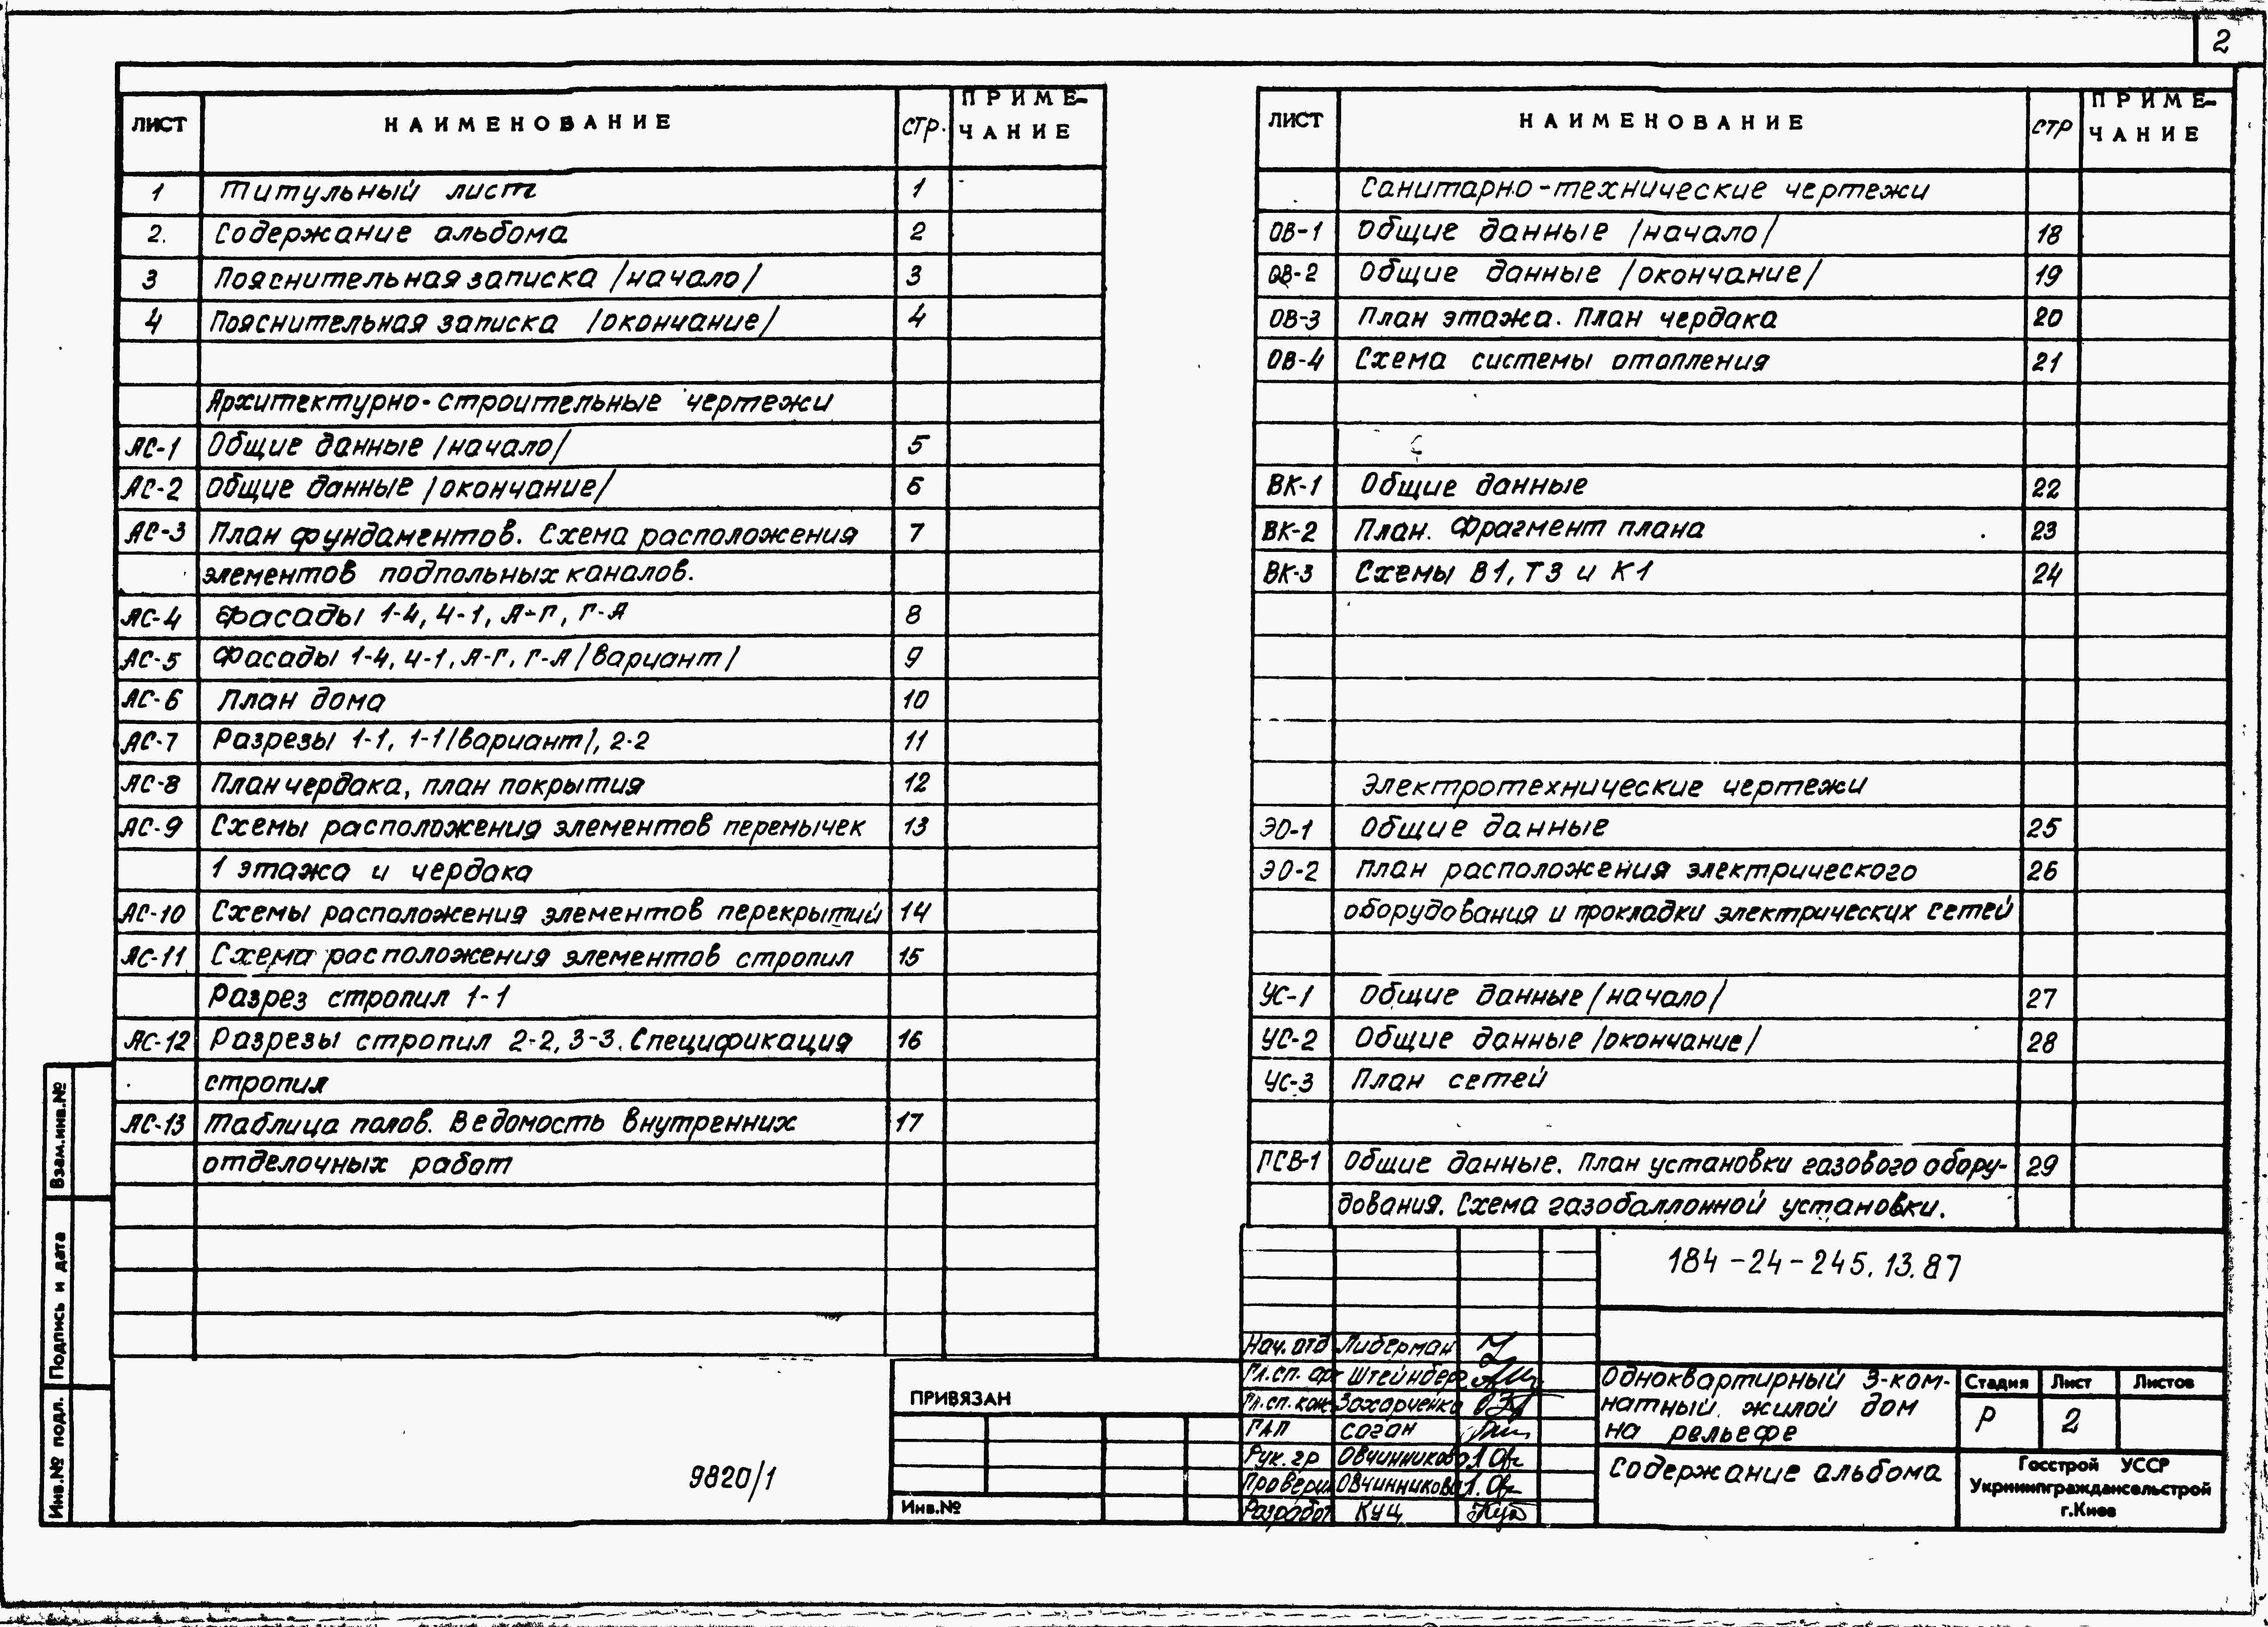 2
ЛИСТ НАИМЕНОВАНИЕ стр. ПРИМЕ-
ЧАНИЕ
1 Титульный лист 1
2. Содержание альбома 2
3 Пояснительная записка /начало/ 3
4 Пояснительная записка /окончание/ 4
Архитектурно-строительные чертежи
АС-1 Общие данные /начало/ 5
АС-2 Общие данные /окончание/ 6
АС-3 План фундаментов. Схема расположения 7
элементов подпольных каналов.
АС-4 Фасады 1-4, 4-1, А-Г, Г-А 8
АС-5 Фасады 1-4, 4-1, А-Г, Г-А /вариант/ 9
АС-6 План дома 10
АС-7 Разрезы 1-1, 1-1/вариант/, 2-2 11
АС-8 План чердака, план покрытия 12
АС-9 Схемы расположения элементов перемычек 13
1 этажа и чердака
АС-10 Схемы расположения элементов перекрытий 14
АС-11 Схема расположения элементов стропил 15
Разрез стропил 1-1
АС-12 Разрезы стропил 2-2, 3-3. Спецификация 16
стропил
АС-13 Таблица полов. Ведомость внутренних 17
отделочных работ
ЛИСТ НАИМЕНОВАНИЕ стр ПРИМЕ-
ЧАНИЕ
Санитарно-технические чертежи
ОВ-1 Общие данные /начало/ 18
ОВ-2 Общие данные /окончание/ 19
ОВ-3 План этажа. План чердака 20
ОВ-4 Схема системы отопления 21
ВК-1 Общие данные 22
ВК-2 План. Фрагмент плана 23
ВК-3 Схемы В1, Т3 и К1 24
Электротехнические чертежи
ЭО-1 Общие данные 25
ЭО-2 План расположения электрического 26
оборудования и прокладки электрических сетей
УС-1 Общие данные /начало/ 27
УС-2 Общие данные /окончание/ 28
УС-3 План сетей
ГСВ-1 Общие данные. План установки газового обору- 29
дования. Схема газобаллонной установки.
184-24-245.13.87
Нач. отд Либерман
Гл.сп. ар Штейнберг
Гл.сп. кон Захарченко
ГАП Соган
Рук. гр Овчинникова
Проверил Овчинникова
Разработ Куц
Одноквартирный 3-ком-
натный жилой дом
на рельефе
Стадия Лист Листов
Р 2
Содержание альбома
Госстрой УССР
Укрниипграждансельстрой
г.Киев
ПРИВЯЗАН
Инв.№
9820/1
Взам.инв.№
Подпись и дата
Инв.№ подл.